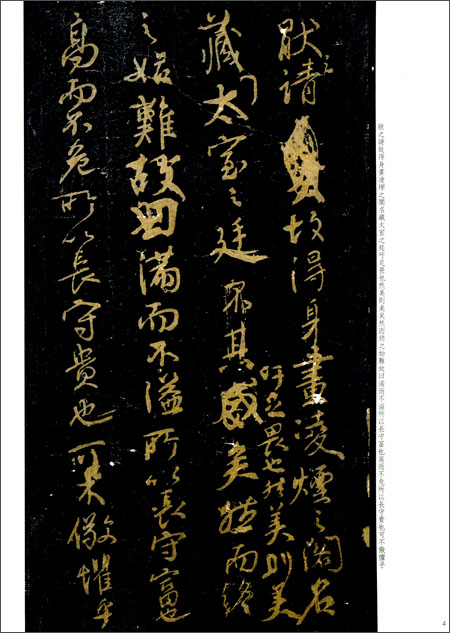 猷之請故得身畫凌煙之閣名藏太室之廷吁足畏也然美則美矣然而終之始難故曰滿而不溢所以長守富也高而不危所以長守貴也可不儆懼乎
猷之請故得身畫凌煙之閣名
吁足畏也然美則美
藏太室之廷其盛矣然而終
之始難故曰滿而不溢所以長守富也
高而不危所以長守貴也可不儆懼乎
4